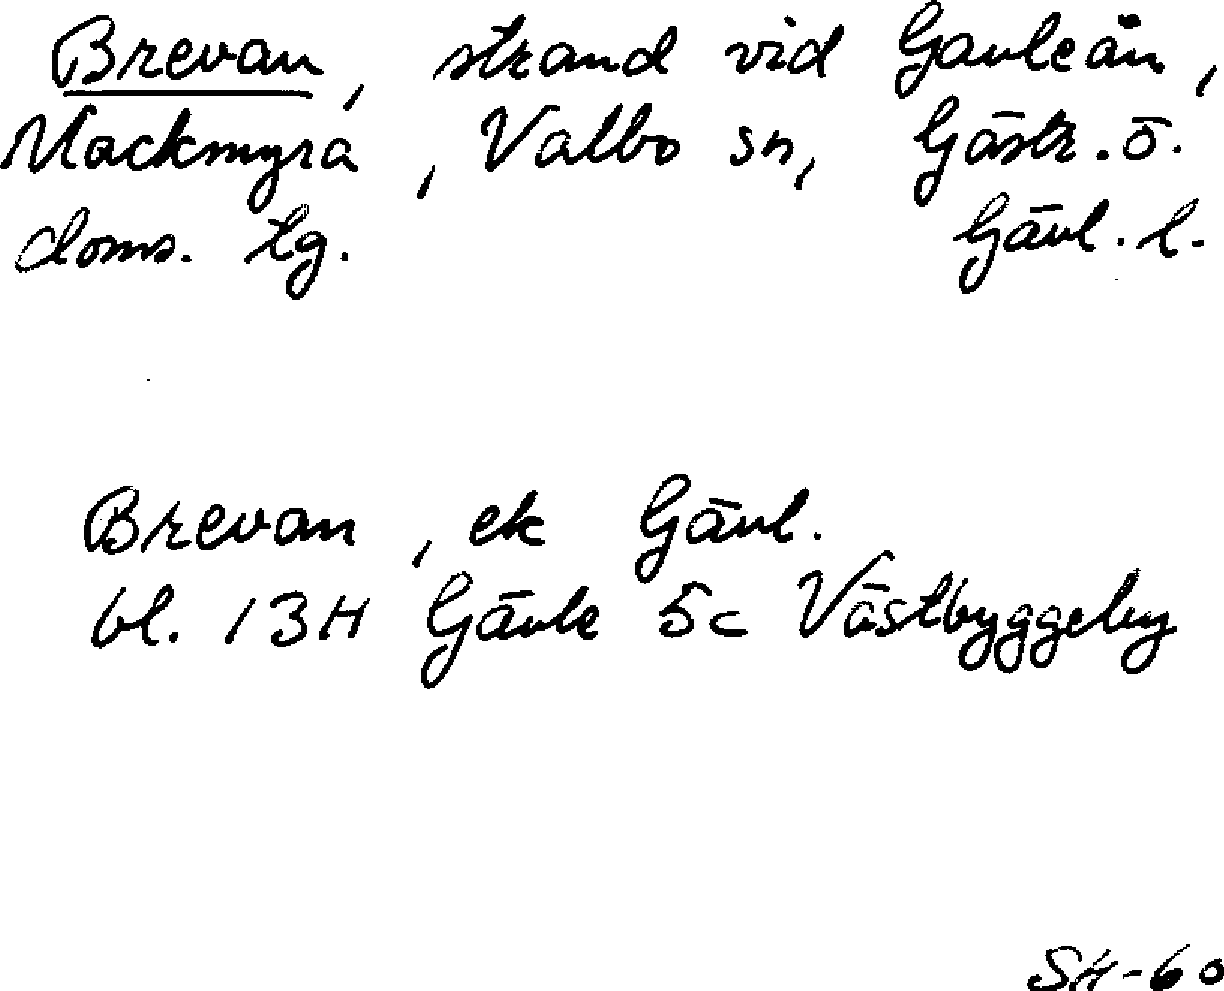 Brevan, strand vid Gavleån,
Mackmyra, Valbo sn, Gästr. ö.
doms. tg. Gävl. l.
Brevan, ek Gävl.
bl. 13H Gävle 5c Västbyggeby
SH-60